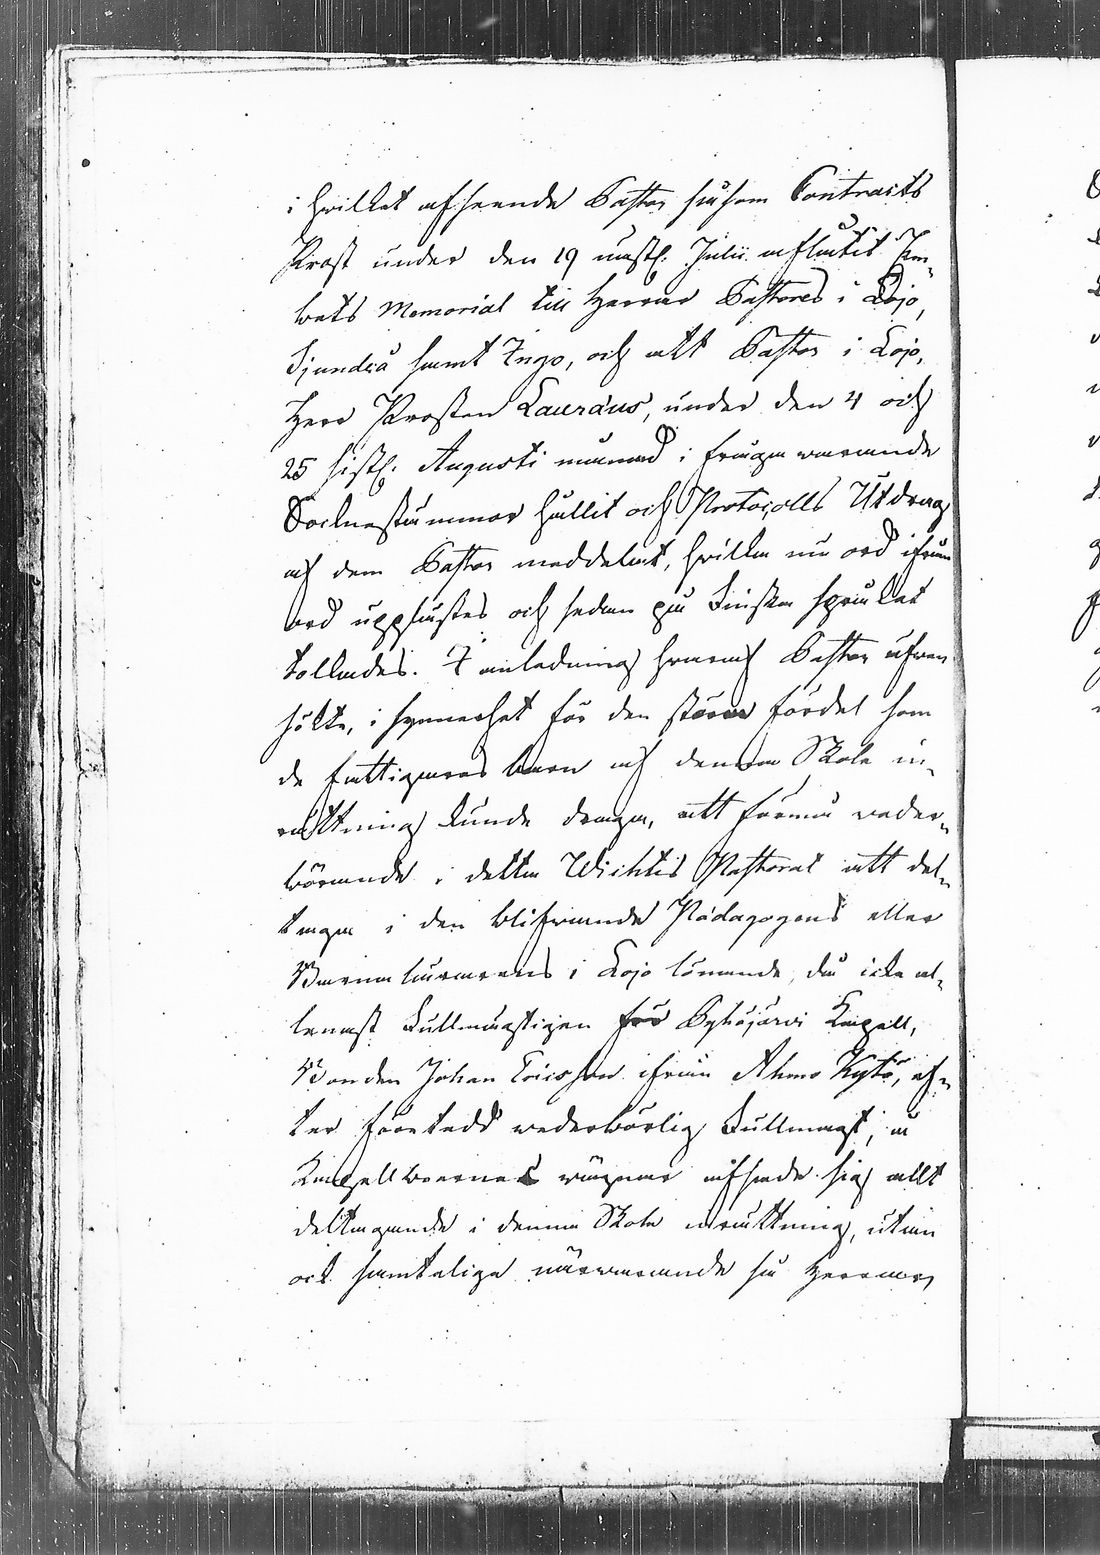 i hvilket afseende Pastor såsom Contracts
Prost under den 19 nästl. Julii aflåtit Em-
bets Memorial till Herrar Pastores i Lojo,
Sjundeå samt Ingo, och att Pastor i Lojo,
Herr Prosten Lauræus, under den 4 och
25 sistl. Augusti månad i fråga warande
Socknestämmor hållit och Protocolls Utdrag
af dem Pastor meddelat, hvilka nu ord ifrån
ord upplästes och sedan på Finska språket
tolkades. I anledning hwaraf Pastor äfwen
sökte, i synnerhet för den större fördel som
de fattigares barn af denna Skole in-
rättning kunde draga, att förmå weder-
börande i detta Wichtis Pastorat att del-
taga i den blifwande Pädagogens eller
Barnalärarens i Lojo lönande, då icke al-
lenast Fullmägtigen för Pyhäjärwi Kapell,
Bonden Johan Ericsson ifrån Ahmo Kytö, ef-
ter företedd wederbörlig Fullmagt, å
Kapellboernes wägnar afsade sig allt
deltagande i denna Skole inrättning, utan
ock samtelige närwarande så Herrar